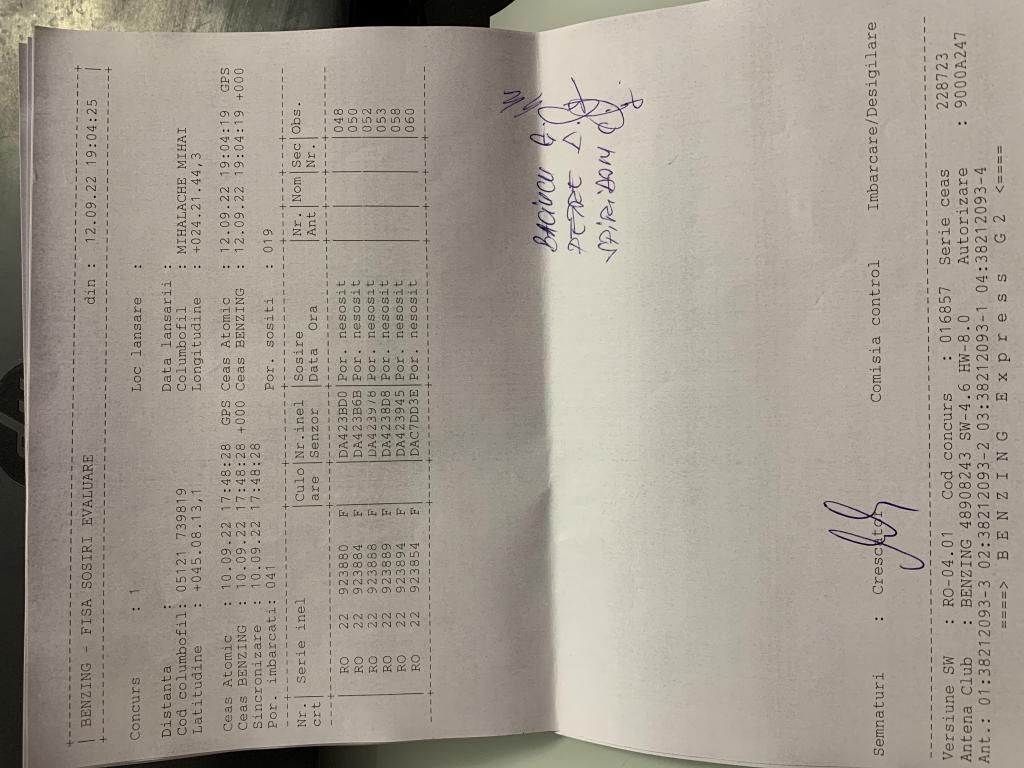 BENZING - FISA SOSIRI EVALUARE din : 12.09.22 19:04:25
Concurs : 1 Loc lansare :
Distanta : Data lansarii :
Cod columbofil: 05121 799819 Columbofil : MIHALACHE MIHAI
Latitudine : +045.08.13,1 Longitudine : +024.21.44,3
Ceas Atomic : 10.09.22 17:48:28 GPS Ceas Atomic : 12.09.22 19:04:19 GPS
Ceas BENZING : 10.09.22 17:48:28 +000 Ceas BENZING : 12.09.22 19:04:19 +000
Sincronizare : 10.09.22 17:48:28
Por. imbarcati: 041 Por. sositi : 019
Nr. | Serie inel |Culo|Nr.inel |Sosire |Nr. Nom|Sec|Obs.
crt | |are |Senzor |Data Ora |Ant |Nr.|
RO 22 923880 F |DA423BD0|Por. nesosit| | |048
RO 22 923884 F |DA423B6B|Por. nesosit| | |050
RO 22 923888 F |DA423978|Por. nesosit| | |052
RO 22 923889 F |DA4238D8|Por. nesosit| | |053
RO 22 923894 F |DA423945|Por. nesosit| | |058
RO 22 923854 F |DAC7DD3E|Por. nesosit| | |060
PETRE D
Semnaturi : Crescator Comisia control Imbarcare/Desigilare
Versiune SW : RO-04.01 Cod concurs : 016857 Serie ceas 228723
Antena Club : BENZING 48908243 SW-4.6 HW-8.0 Autorizare : 9000A247
Ant.: 01:38212093-3 02:38212093-2 03:38212093-1 04:38212093-4
====> B E N Z I N G E x p r e s s G 2 <====